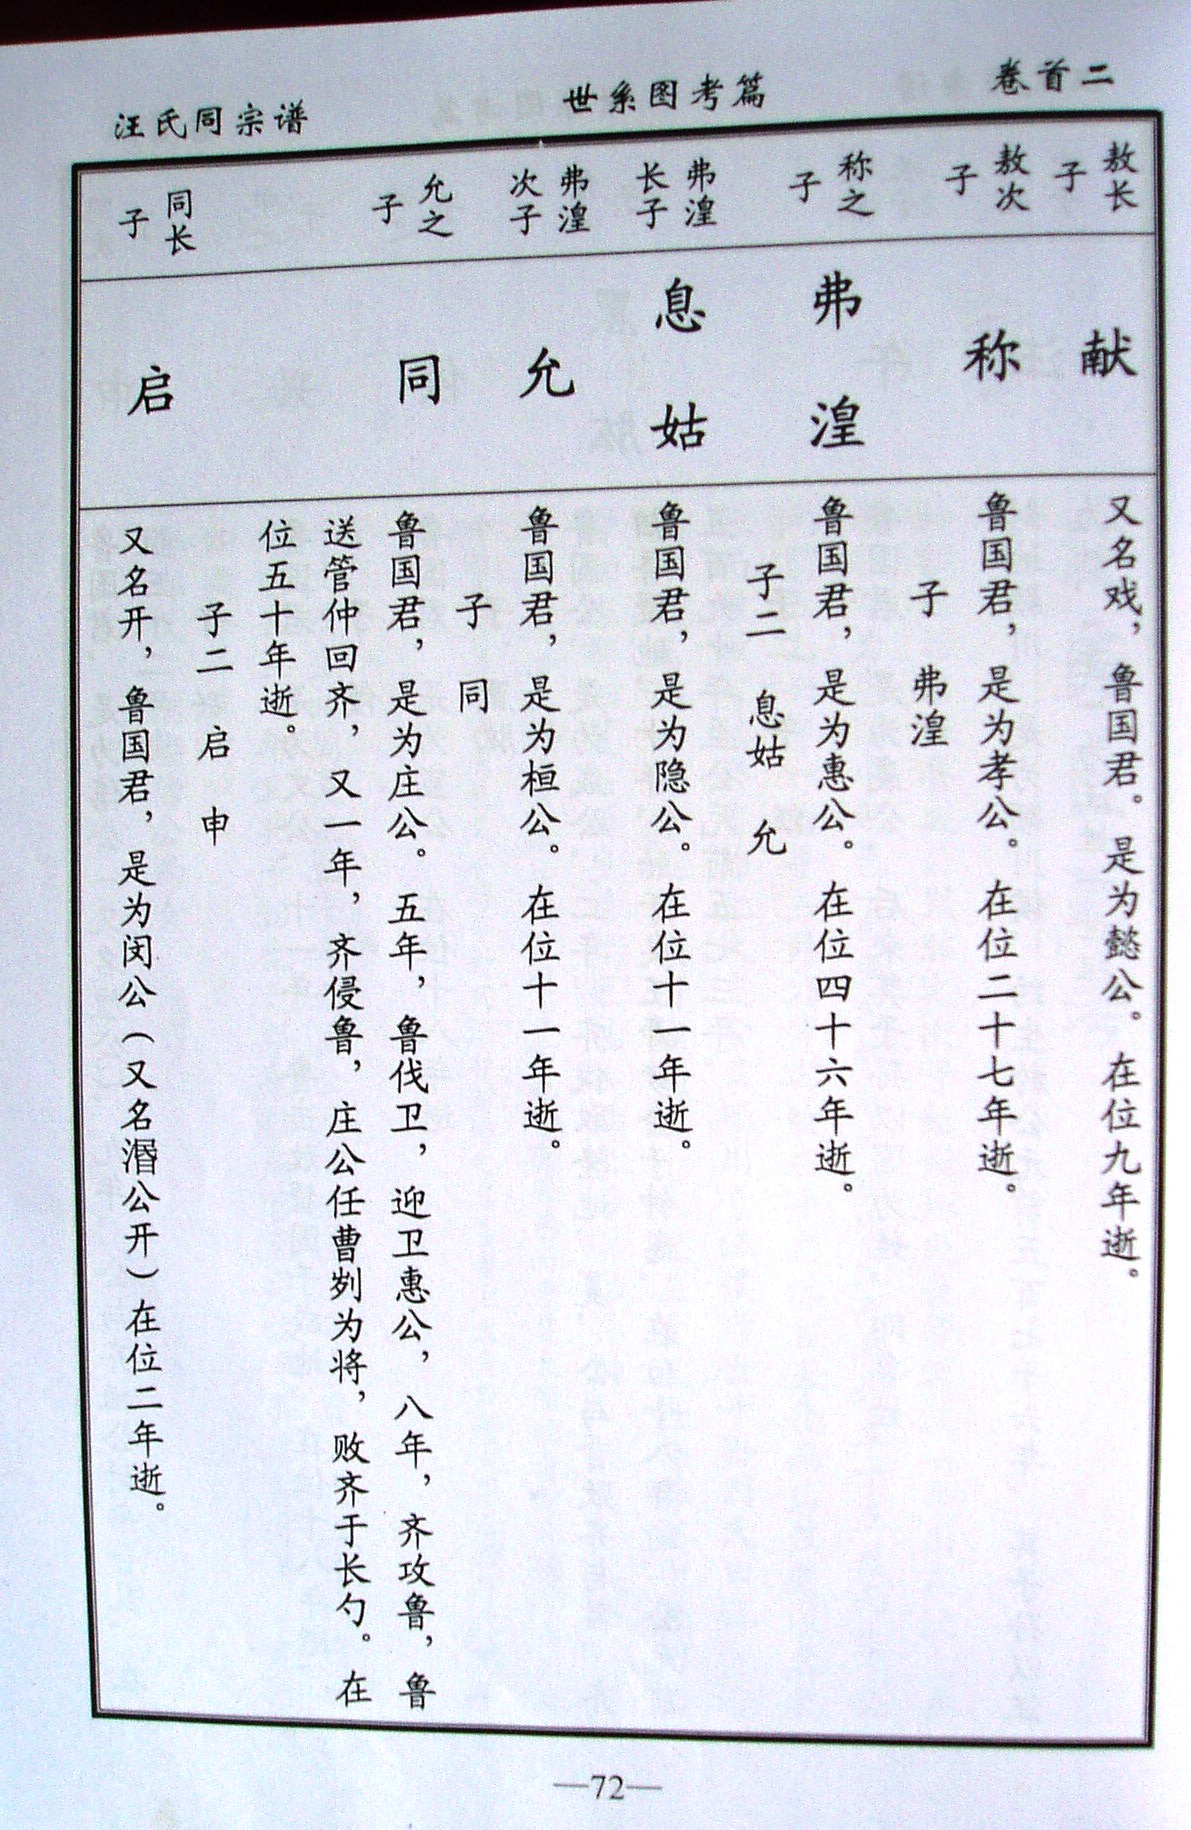 汪氏同宗谱 世系图考篇 卷首二
敖长子
献
又名戏，鲁国君。是为懿公。在位九年逝。
敖次子
称
鲁国君，是为孝公。在位二十七年逝。
子 弗湟
称之子
弗湟
鲁国君，是为惠公。在位四十六年逝。
子二 息姑 允
弗湟长子
息姑
鲁国君，是为隐公。在位十一年逝。
弗湟次子
允
鲁国君，是为桓公。在位十一年逝。
子 同
允之子
同
鲁国君，是为庄公。五年，鲁伐卫，迎卫惠公，八年，齐攻鲁，鲁
送管仲回齐，又一年，齐侵鲁，庄公任曹刿为将，败齐于长勺。在
位五十年逝。
子二 启 申
同长子
启
又名开，鲁国君，是为闵公（又名湣公开）在位二年逝。
—72—